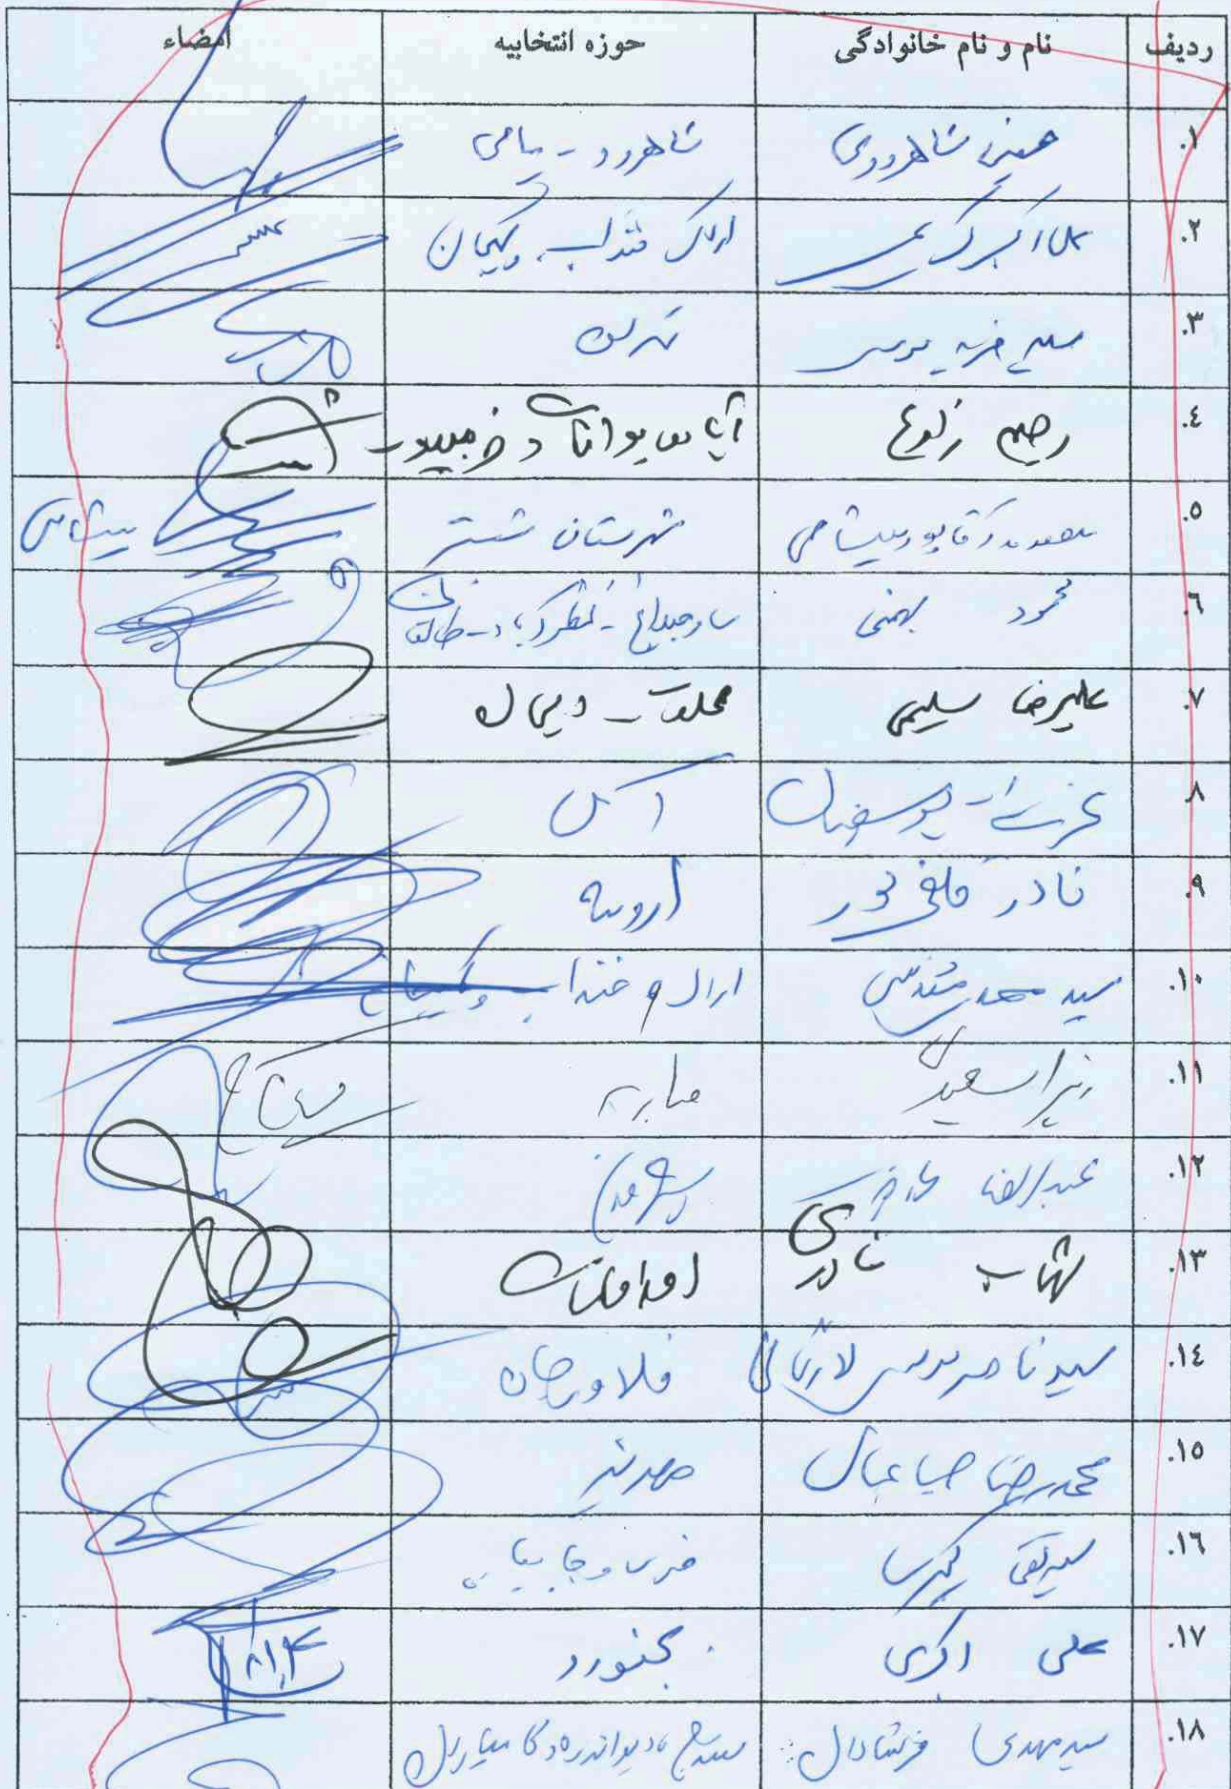 ردیف نام و نام خانوادگی حوزه انتخابیه امضاء
.۱ حسینی شاهرودی شاهرود - میامی
.۲ علی اکبر کریمی اراک خنداب کمیجان
.۳ تهران
.٤ رحیم زارع آباده بوانات و خرمبید
.٥ شهرستان شبستر
.٦ محمود بهمنی ساوجبلاغ - نظرآباد - طالقان
.۷ علیرضا سلیمی محلات و دلیجان
.۸ عزت اله یوسفیان آمل
.۹ نادر قاضی پور ارومیه
.۱۰ سید مهدی مقدسی اراک و خنداب و کمیجان
.۱۱ زهرا سعیدی مبارکه
.۱۲ عبدالرضا
.۱۳ شهاب نادری اورامانات
.۱٤ سید ناصر موسوی لارگانی فلاورجان
.۱٥ محمدرضا صباغیان مهریز
.۱٦ سید تقی
.۱۷ علی اکبری بجنورد
.۱۸ سید مهدی فرشادان سنندج، دیواندره و کامیاران